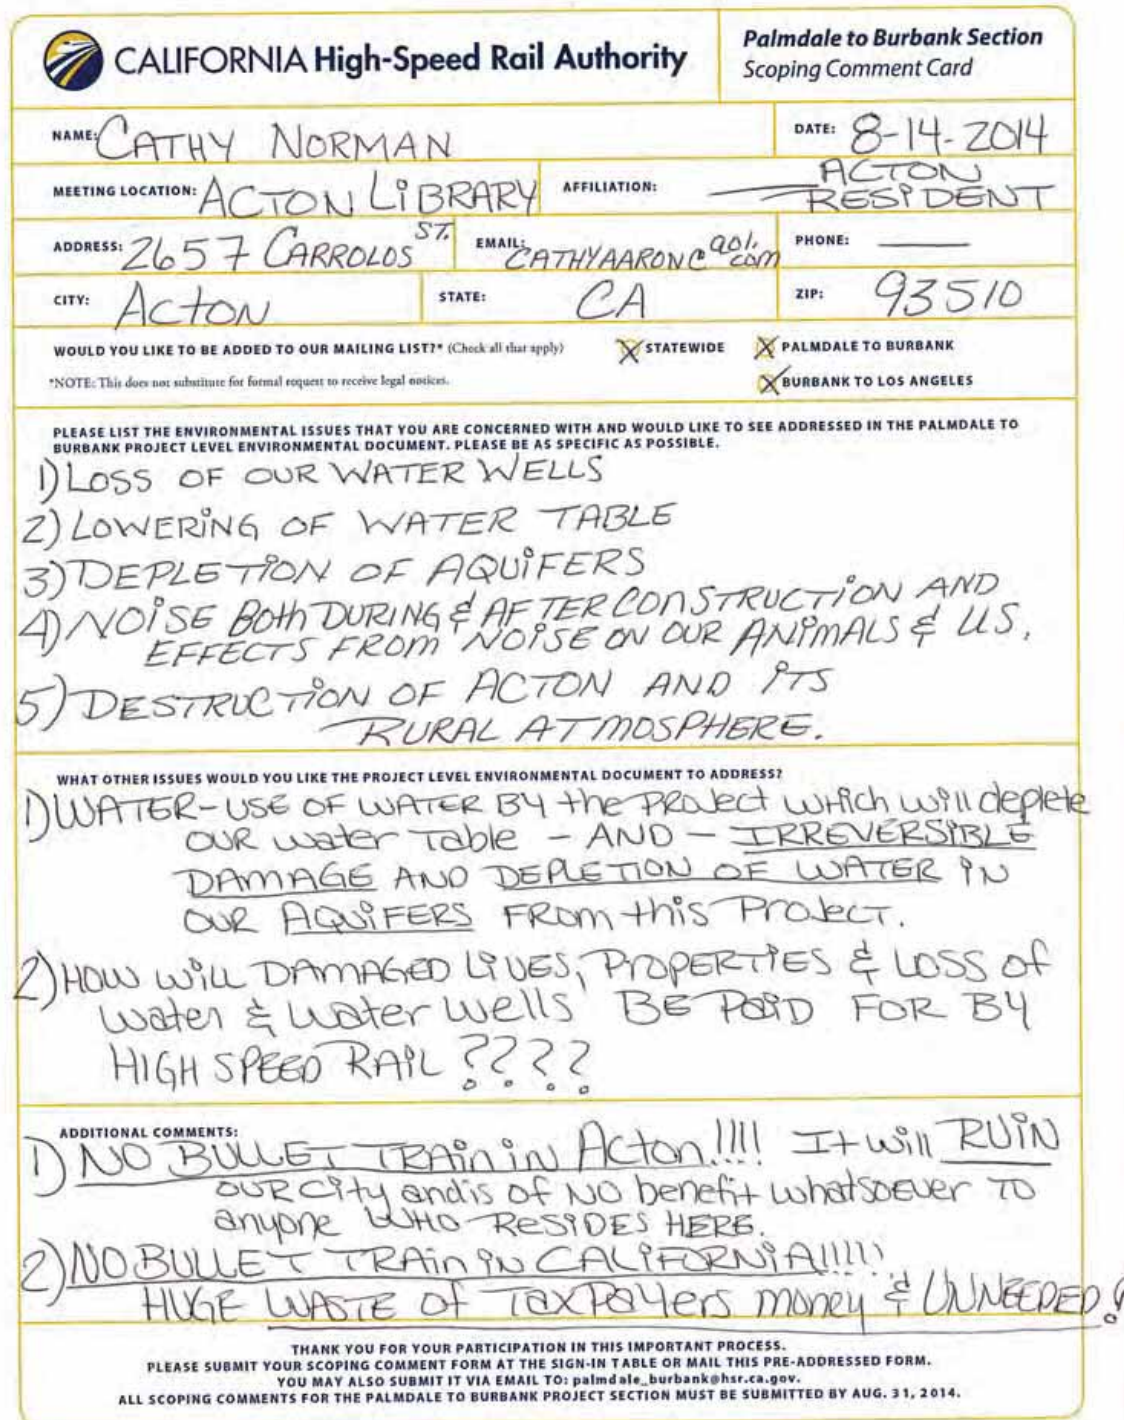 CALIFORNIA High-Speed Rail Authority
Palmdale to Burbank Section
Scoping Comment Card
NAME: CATHY NORMAN
DATE: 8-14-2014
MEETING LOCATION: ACTON LiBRARY
AFFILIATION: ACTON
RESIDENT
ADDRESS: 2657 CARROLOS ST.
EMAIL: CATHYAARON@aol.com
PHONE: ——
CITY: ACTON
STATE: CA
ZIP: 93510
WOULD YOU LIKE TO BE ADDED TO OUR MAILING LIST?* (Check all that apply)
STATEWIDE
PALMDALE TO BURBANK
*NOTE: This does not substitute for formal request to receive legal notices.
BURBANK TO LOS ANGELES
PLEASE LIST THE ENVIRONMENTAL ISSUES THAT YOU ARE CONCERNED WITH AND WOULD LIKE TO SEE ADDRESSED IN THE PALMDALE TO
BURBANK PROJECT LEVEL ENVIRONMENTAL DOCUMENT. PLEASE BE AS SPECIFIC AS POSSIBLE.
1) LOSS OF OUR WATER WELLS
2) LOWERiNG OF WATER TABLE
3) DEPLETiON OF AQUiFERS
4) NOiSE BOth DURiNG & AFTER CONSTRUCTiON AND
EFFECTS FROM NOiSE ON OUR ANiMALS & US.
5) DESTRUCTiON OF ACTON AND iTS
RURAL ATMOSPHERE.
WHAT OTHER ISSUES WOULD YOU LIKE THE PROJECT LEVEL ENVIRONMENTAL DOCUMENT TO ADDRESS?
1) WATER - USE OF WATER BY the PROJect which will deplete
OUR water Table - AND - IRREVERSiBLE
DAMAGE AND DEPLETION OF WATER iN
OUR AQUiFERS FROM this PROJECT.
2) HOW WiLL DAMAGED LiVES, PROPERTIES & LOSS Of
Water & Water Wells BE PAiD FOR BY
HIGH SPEED RAiL ????
ADDITIONAL COMMENTS:
1) NO BULLET TRAin in Acton!!!! It will RUiN
OUR City and is of NO benefit whatsoEVER TO
anyone WHO RESiDES HERE.
2) NO BULLET TRAin iN CALiFORNiA!!!!!
HUGE WASTE Of TaxPayers money & UNNEEDED!
THANK YOU FOR YOUR PARTICIPATION IN THIS IMPORTANT PROCESS.
PLEASE SUBMIT YOUR SCOPING COMMENT FORM AT THE SIGN-IN TABLE OR MAIL THIS PRE-ADDRESSED FORM.
YOU MAY ALSO SUBMIT IT VIA EMAIL TO: palmdale_burbank@hsr.ca.gov.
ALL SCOPING COMMENTS FOR THE PALMDALE TO BURBANK PROJECT SECTION MUST BE SUBMITTED BY AUG. 31, 2014.